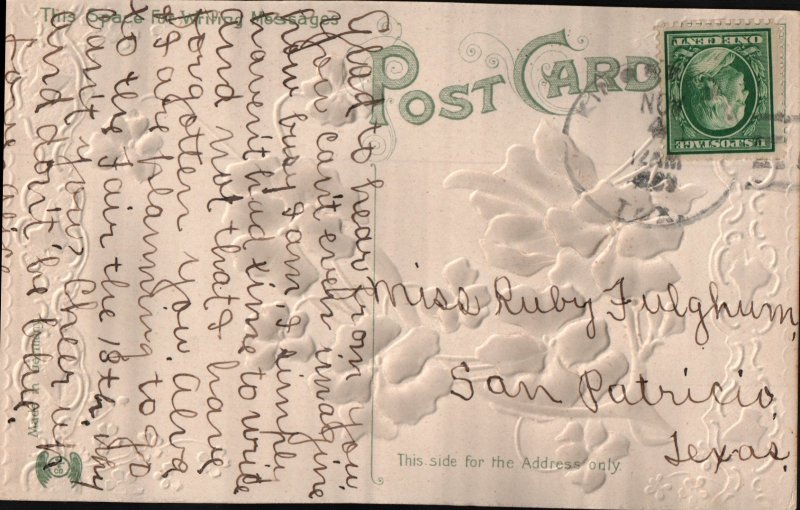 This Space for Writing Messages
POST CARD
Glad to hear from you.
you can't even imagine
how busy I am I simply
haven't had time to write
and not that I have
forgotten you. Alva
& I are planning to go
to the fair the 18th. Why
can't you? Cheer up
and don't be blue.
Love Alice
Made in Germany
Miss Ruby Fulghum,
San Patricio,
Texas.
This side for the Address only.
U.S. POSTAGE
ONE CENT
NOV
12 AM
TEX